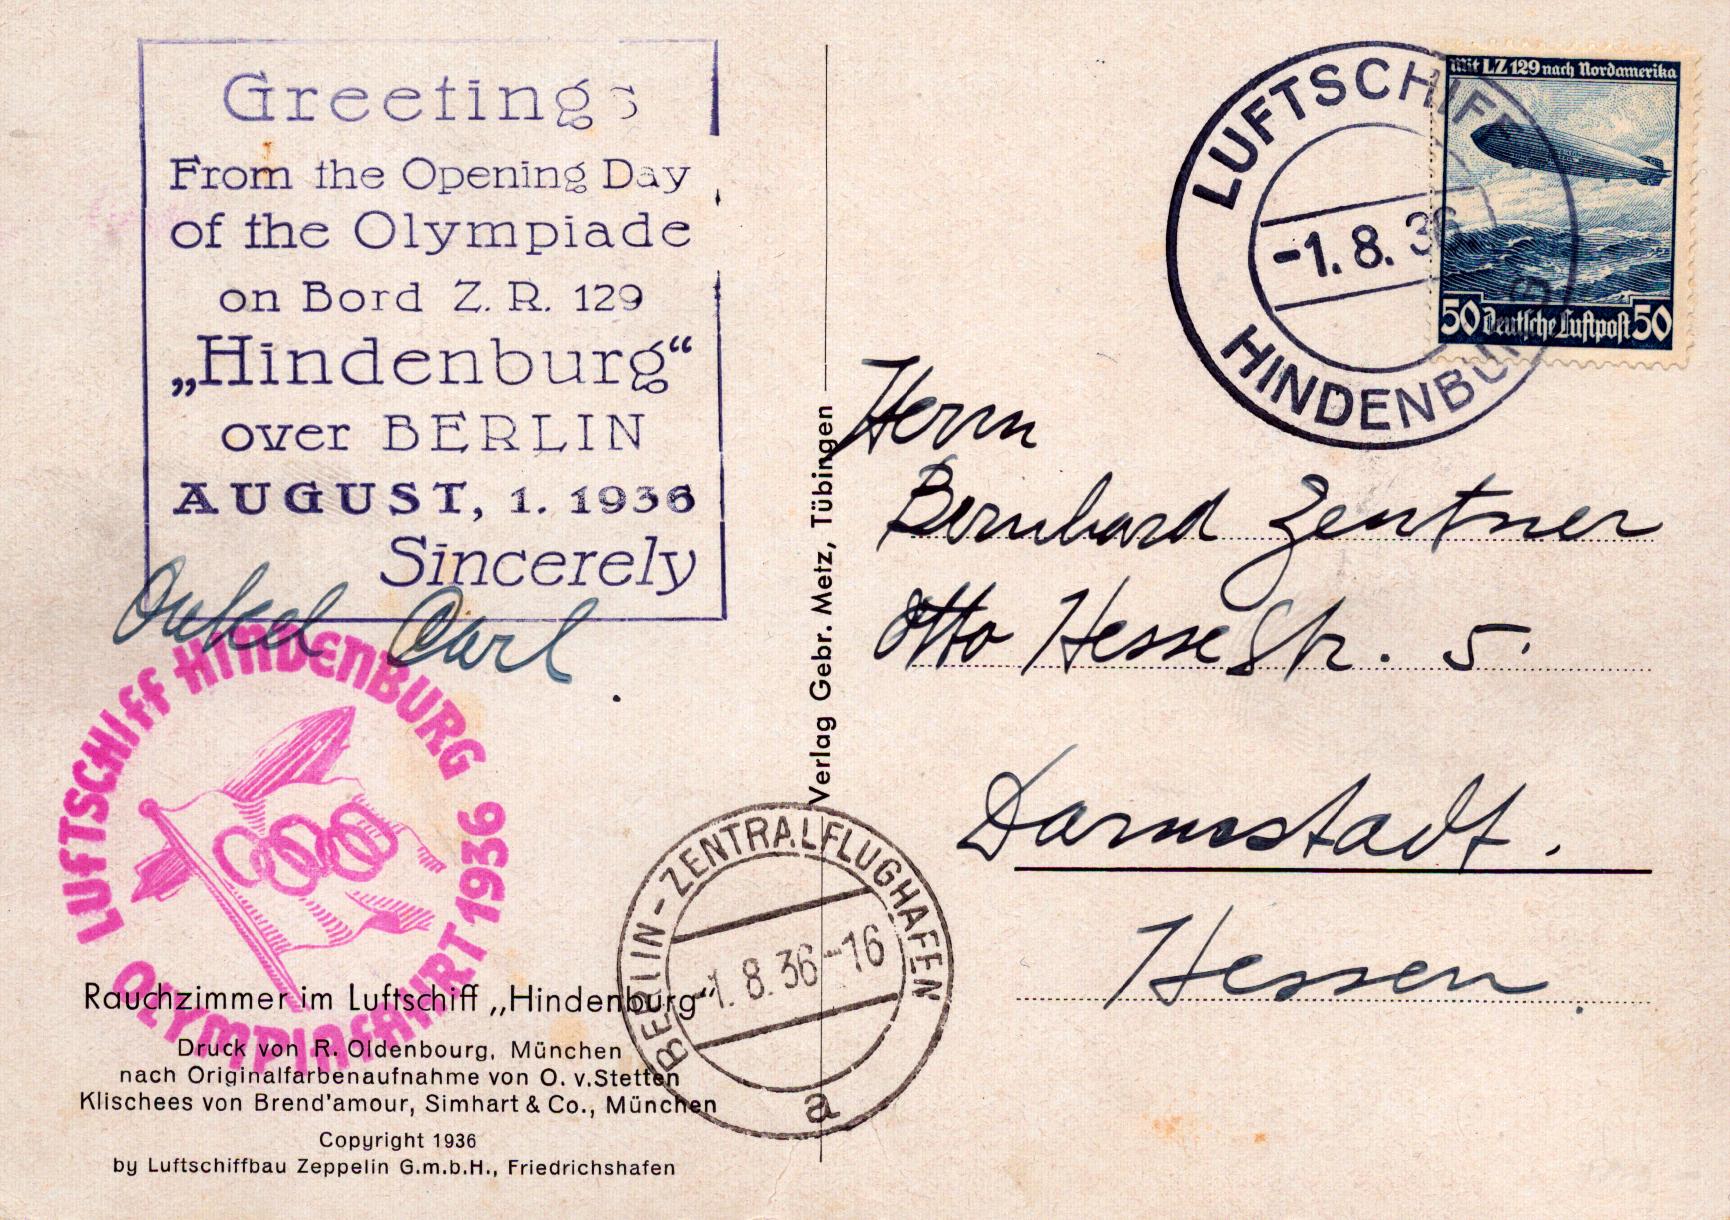 Greetings
From the Opening Day
of the Olympiade
on Bord Z. R. 129
„Hindenburg“
over BERLIN
AUGUST, 1. 1936
Sincerely
Onkel Carl
LUFTSCHIFF HINDENBURG
OLYMPIAFAHRT 1936
Rauchzimmer im Luftschiff „Hindenburg“
Druck von R. Oldenbourg, München
nach Originalfarbenaufnahme von O. v. Stetten
Klischees von Brend'amour, Simhart & Co., München
Copyright 1936
by Luftschiffbau Zeppelin G.m.b.H., Friedrichshafen
Verlag Gebr. Metz, Tübingen
BERLIN-ZENTRALFLUGHAFEN
-1.8.36-16
a
LUFTSCHIFF
-1.8.36
HINDENBURG
Mit LZ 129 nach Nordamerika
50 Deutsche Luftpost 50
Herrn
Bernhard Zentner
Otto Hesse Str. 5.
Darmstadt.
Hessen.